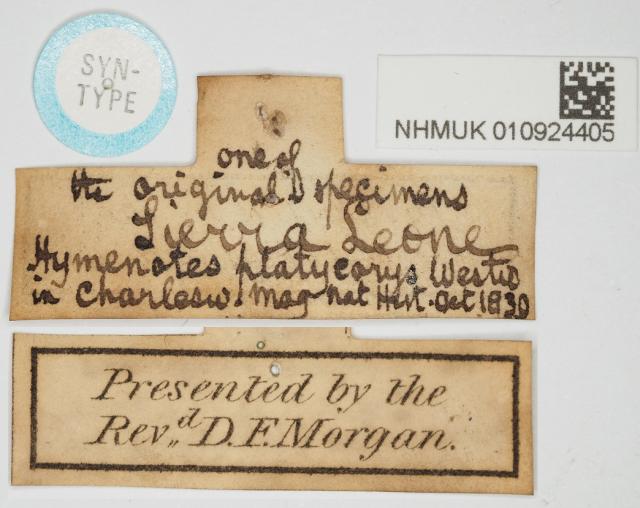 SYN-
TYPE
NHMUK 010924405
one of
the original specimens
Sierra Leone
Hymenotes platycorys Westw
in Charlesw. Mag Nat Hist. Oct 1830
Presented by the
Rev.d D. F. Morgan.